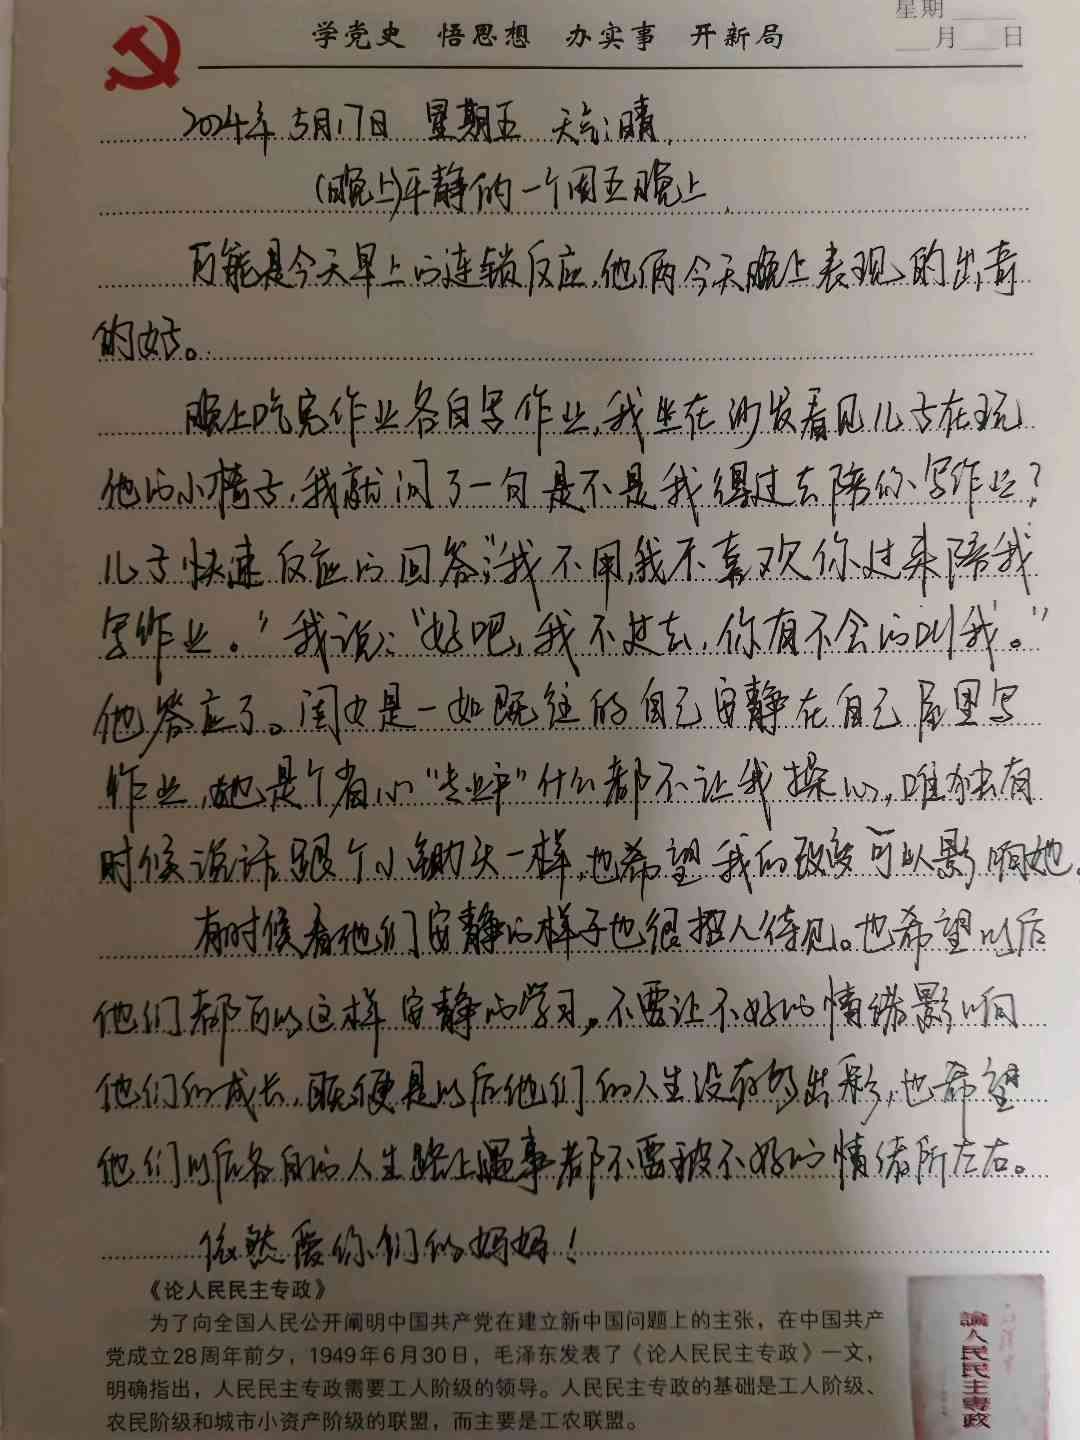 学党史 悟思想 办实事 开新局
星期
月 日
2024年5月17日 星期五 天气:晴
(晚上)平静的一个周五晚上
可能是今天早上的连锁反应,他俩今天晚上表现的出奇
的好。
晚上吃完作业各自写作业,我坐在沙发看见儿子在玩
他的小椅子,我就问了一句是不是我得过去陪你写作业?
儿子快速反应的回答:“我不用,我不喜欢你过来陪我
写作业。”我说:“好吧,我不过去,你有不会的叫我。”
他答应了。闺女是一如既往的自己安静在自己屋里写
作业,她是个省心 什么都不让我操心,唯独有
时候说话跟个小锄头一样,也希望我的改变可以影响她。
有时候看他们安静的样子也很招人待见。也希望以后
他们都可以这样安静的学习,不要让不好的情绪影响
他们的成长,既便是以后他们的人生没有够出彩,也希望
他们以后各自的人生路上遇事都不要被不好的情绪所左右。
依然爱你们的妈妈!
《论人民民主专政》
为了向全国人民公开阐明中国共产党在建立新中国问题上的主张,在中国共产
党成立28周年前夕,1949年6月30日,毛泽东发表了《论人民民主专政》一文,
明确指出,人民民主专政需要工人阶级的领导。人民民主专政的基础是工人阶级、
农民阶级和城市小资产阶级的联盟,而主要是工农联盟。
論人民民主專政